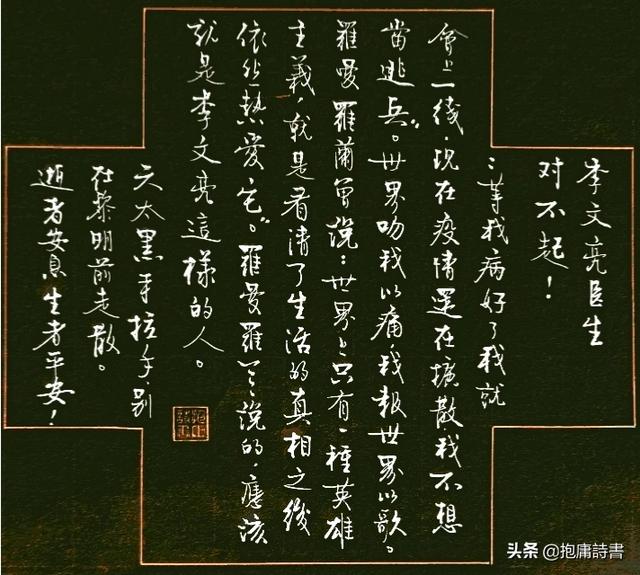 李文亮医生
对不起！
："等我病好了我就
會上一线，现在疫情還在擴散，我不想
當逃兵。"世界吻我以痛，我報世界以歌。
羅曼羅蘭曾说：世界上只有一種英雄
主義，就是看清了生活的真相之後
依然熱爱它。羅曼羅兰说的，應该
就是李文亮這樣的人。
天太黑手拉手，别
在黎明前走散。
逝者安息生者平安！
头条 @抱庸詩書